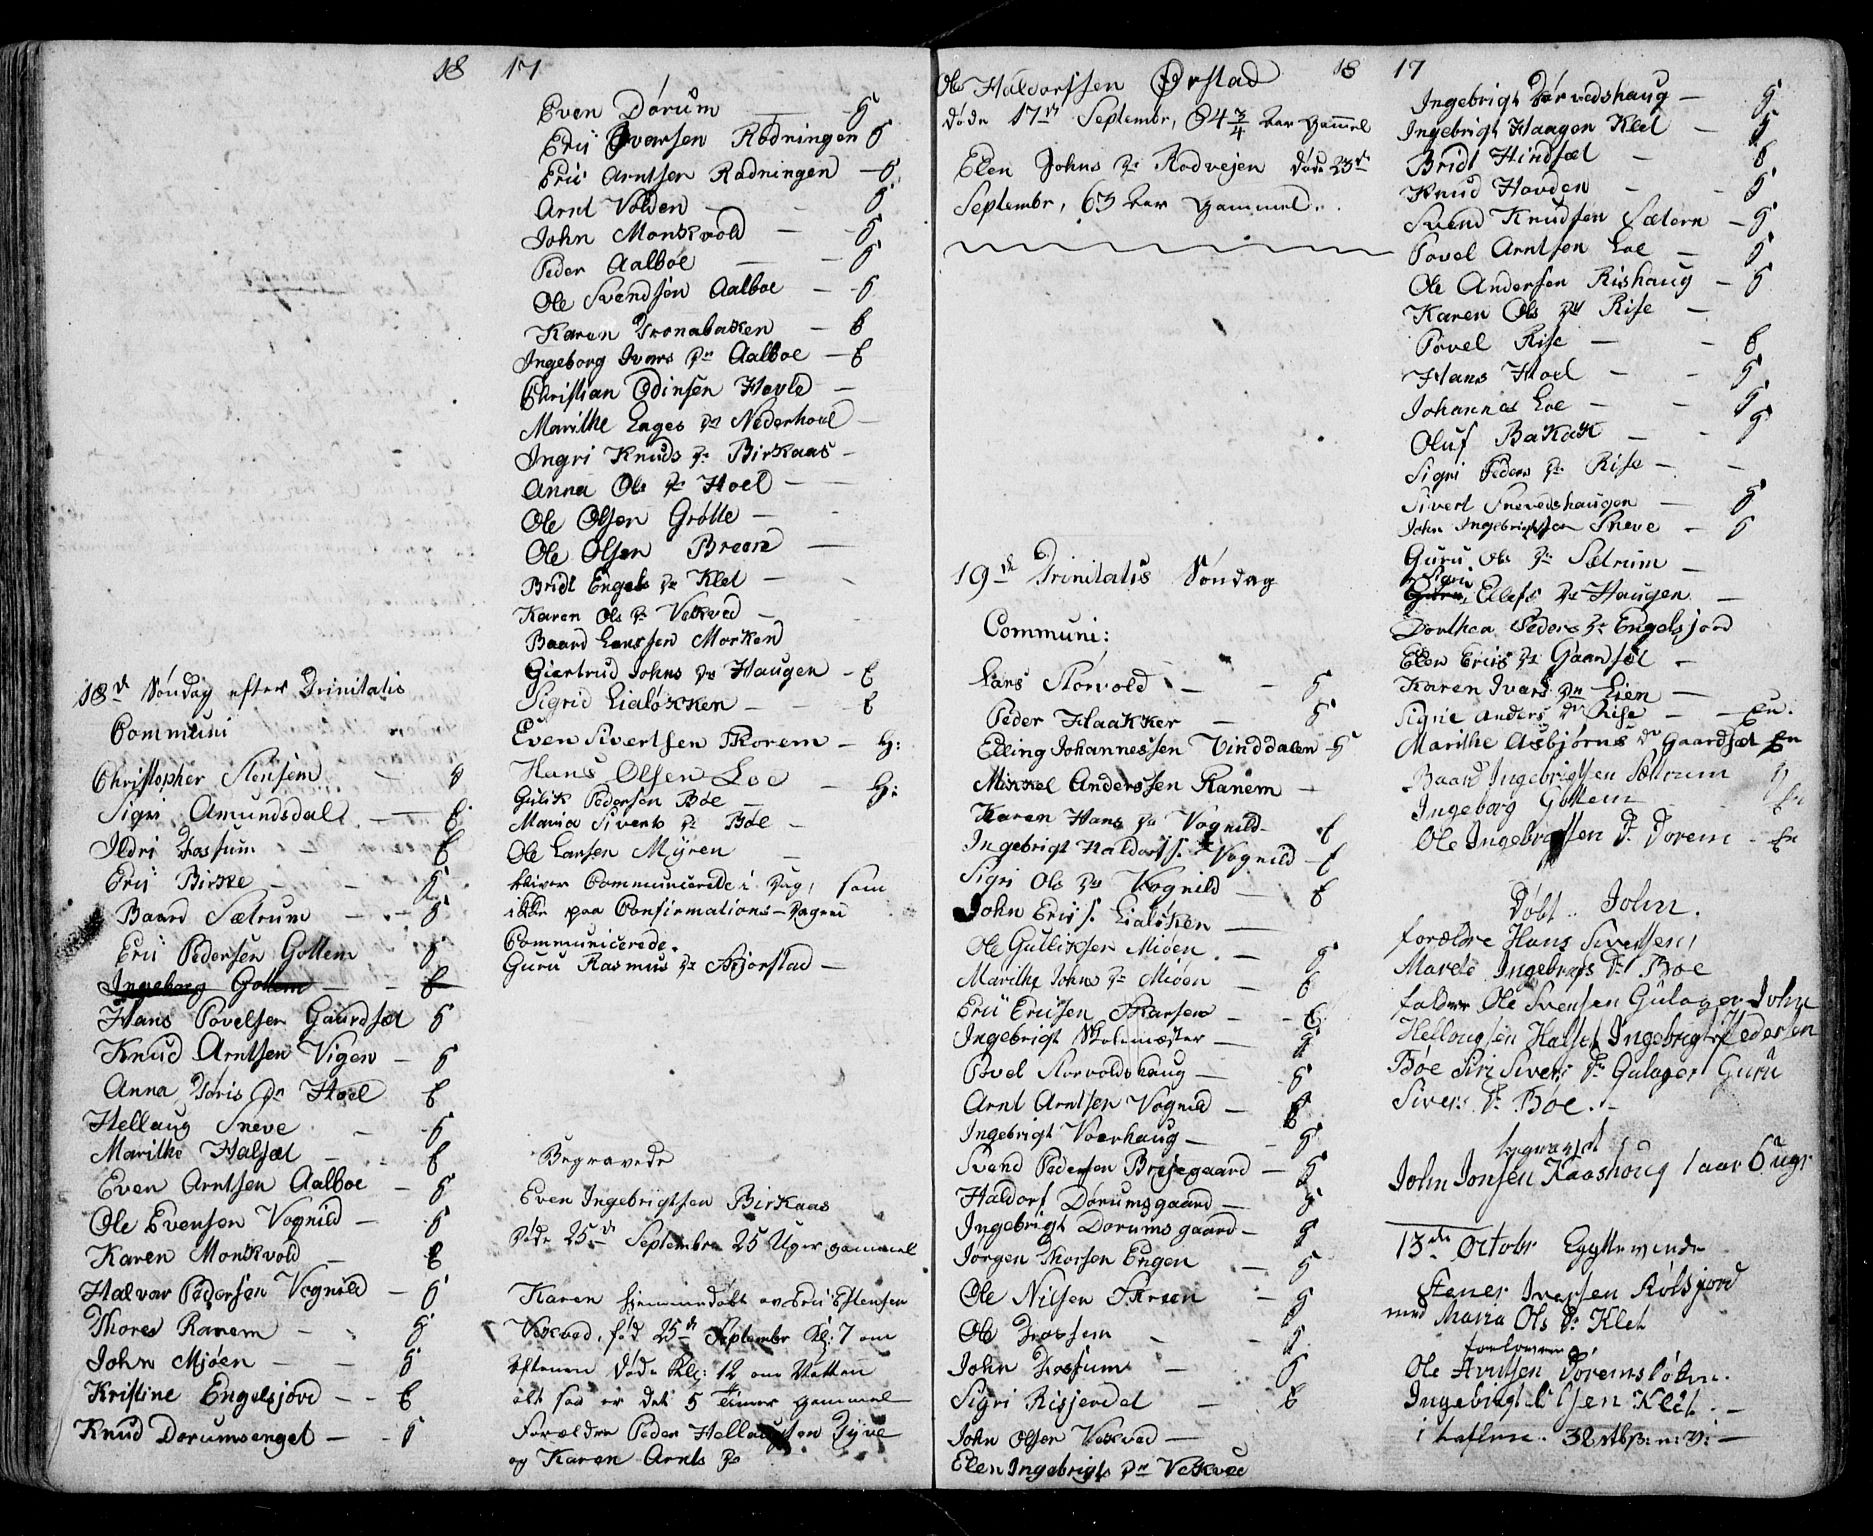 18 17
18d Søndag efter Trinitatis
Communi
Christopher Stensem - 6
Sigri Amundsdal - E
Ildri Fossum - E
Erii Birke - - G
Baard Sætrum - - G
Erii Pedersen Gottem G
Ingeborg Gottem - - E
Hans Povelsen Gaardsæt G
Knud Arntsen Vigen - G
Anna Joris Dr Hoel E
Hellaug Sneve - G
Marithe Halsæt - E
Even Arntsen Aalboe - G
Ole Evensen Vognild - G
Karen Monkvold - E
Halvor Pedersen Vognild - G
Thores Ranem - G
John Mjøen - - G
Kristine Engelsjord - - E
Knud Dorumsenget - - G
Even Dørum - G
Erii Ivarsen Rødningen G
Erii Arntsen Rødningen - G
Arnt Volden - - G
John Monkvold - - G
Peder Aalboe - - G
Ole Svendsen Aalboe - - G
Karen Tronabakken - E
Ingeborg Ivars Dr Aalboe - E
Christian Odinsen Hovle -
Marithe Enges Dr Nederhoel -
Ingri Knuds Dr Birkaas -
Anna Ols Dr Hoel - -
Ole Olsen Grøtte - -
Ole Olsen Breen -
Bridt Engels Dr Klet - -
Karen Ols Dr Vekved -
Baard Larssen Morken
Giertrud Johns Dr Haugen - E
Sigrid Lialøkken - - E
Even Sivertsen Thorem - H:
Hans Olsen Loe - H:
Gulik Pedersen Bøe -
Maria Siverts Dr Bøe -
Ole Larsen Myren -
bliver Communicerede i Dag, som
ikke paa Confirmations-Dagen
Communicerede.
Guru Rasmus Dr Stjorstad -
Begravede
Even Ingebrigtsen Birkaas
døde 25de Septembr 25 Uger gammel
Karen hiemmedøbt av Erii Estensen
Vekved, fød 25d Septembr Kl: 7 om
Aftenen døde Kl: 12 om Natten
alt saa er det 5 Timer gammel
Forældre Peder Hellaugsen Tyve
og Karen Arnts Dr
18 17
Ole Haldorssen Ørstad
døde 17de Septembr, 84 3/4 Aar Gammel
Elen Johns Dr Rodvejen døde 23de
Septembr, 63 Aar Gammel.
19d Trinitatis Søndag
Communi:
Lars Storvold - - G
Peder Haakker - G
Elling Johannessen Vinddalen - G
Mikkel Anderssen Ranem -
Karen Hans Dr Vognild - E
Ingebrigt Haldorss. Vognild - E
Sigri Ols Dr Vognild - E
John Eriis. Lialøken -
Ole Gulliksen Miøen - - G
Marithe Johns Dr Miøen - E
Erii Eriisen - - E
Ingebrigt Skolemester - G
Povel Storvoldshaug - G
Arnt Arntsen Vognild - E
Ingebrigt Voerhaug - - G
Svend Pedersen Bresegaard - G
Haldorf Dørumsgaard - G
Ingebrigt Dorumsgaard - G
Jorgen Thorsen Engen - G
Ole Nilsen Skreen - G
Ole Fossem - - G
John Fossum - - G
Sigri Risjerdet - - E
John Olsen Vekved -
Elen Ingebrigts Dr Vekved
Ingebrigt Torvedshaug - G
Ingebrigt Haagen Klet - G
Bridt Hindsæt - E
Knud Hovden - - G
Svend Knudsen Sætern - G
Povel Arntsen Loe - G
Ole Andersen Rishaug - G
Karen Ols Dr Rise -
Povel Rise - - E
Hans Hoel - - G
Johannes Loe - - G
Oluf Bakak - - G
Sigri Peders Dr Rise - -
Sivert Snevedshaugen - G
John Ingebrigtsen Sneve - G
Guru Ols Dr Sætrum -
Sigri
Guru Ellefs Dr Haugen -
Dorthea Peders Dr Engelsjord
Elen Eriis Dr Gaardsæt -
Karen Ivars Dr Lien -
Signe Anders Dr Rise - - En.
Marithe Asbjørns Dr Gaardsæt En
Baard Ingebrigtsen Sætrum G
Ingeborg Gottem - En
Ole Ingebrigtsen Dorem - En
Døbt. John.
forældre Hans Sivertsen,
Marete Ingebrigs Dr Boe
faldre Ole Svensen Gulager John
Hellougsen Halset Ingebrigt Pedersen
Bøe Siri Sivers Dr Gulager Guru
Sivers Dr Boe. -
begravet
John Jonsen Kaashoug 1 aar 6 uger
13de Octobr Egtteviede
Stener Iversen Rølsjord
med Maria Ols Dr Klet
forlovere
Ole Arntsen Doremsløkn.
Ingebrigt Olsen Klet. -